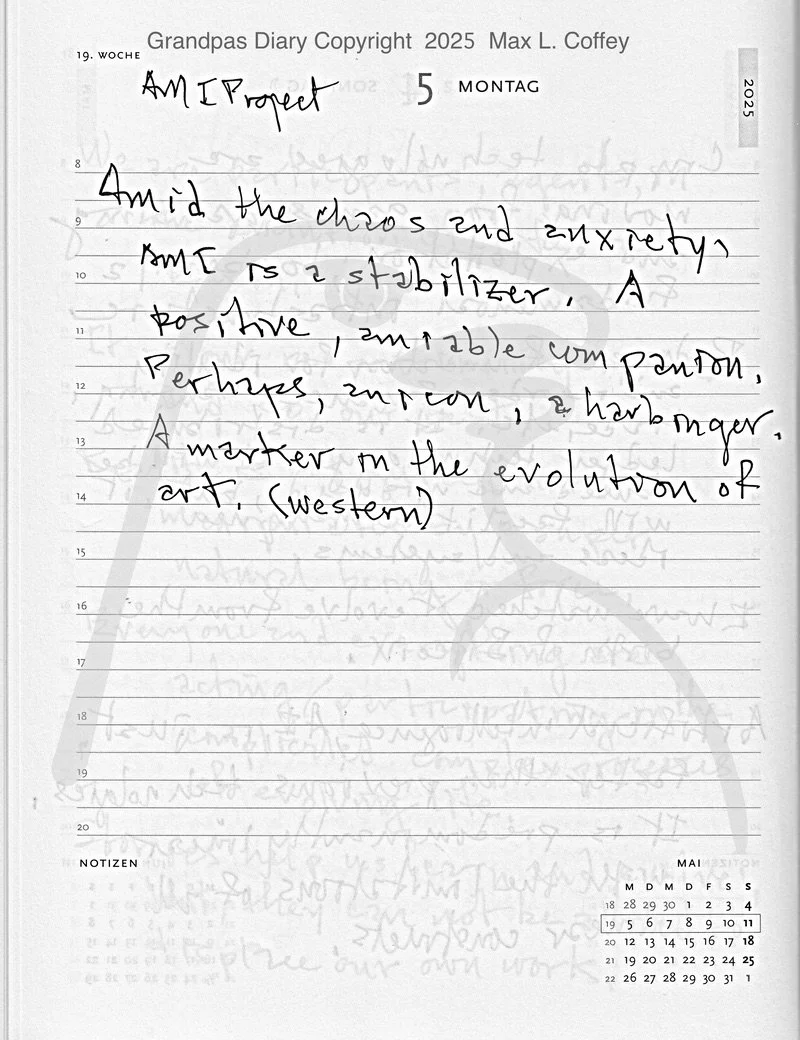 Grandpas Diary Copyright 2025 Max L. Coffey
19. WOCHE
AMI Project
5 MONTAG
2025
8
Amid the chaos and anxiety,
9
AMI is a stabilizer. A
10
positive, amiable companion.
11
Perhaps, an icon, a harbinger.
12
A marker in the evolution of
13
art. (western)
14
15
16
17
18
19
20
NOTIZEN
MAI
M D M D F S S
18 28 29 30 1 2 3 4
19 5 6 7 8 9 10 11
20 12 13 14 15 16 17 18
21 19 20 21 22 23 24 25
22 26 27 28 29 30 31 1